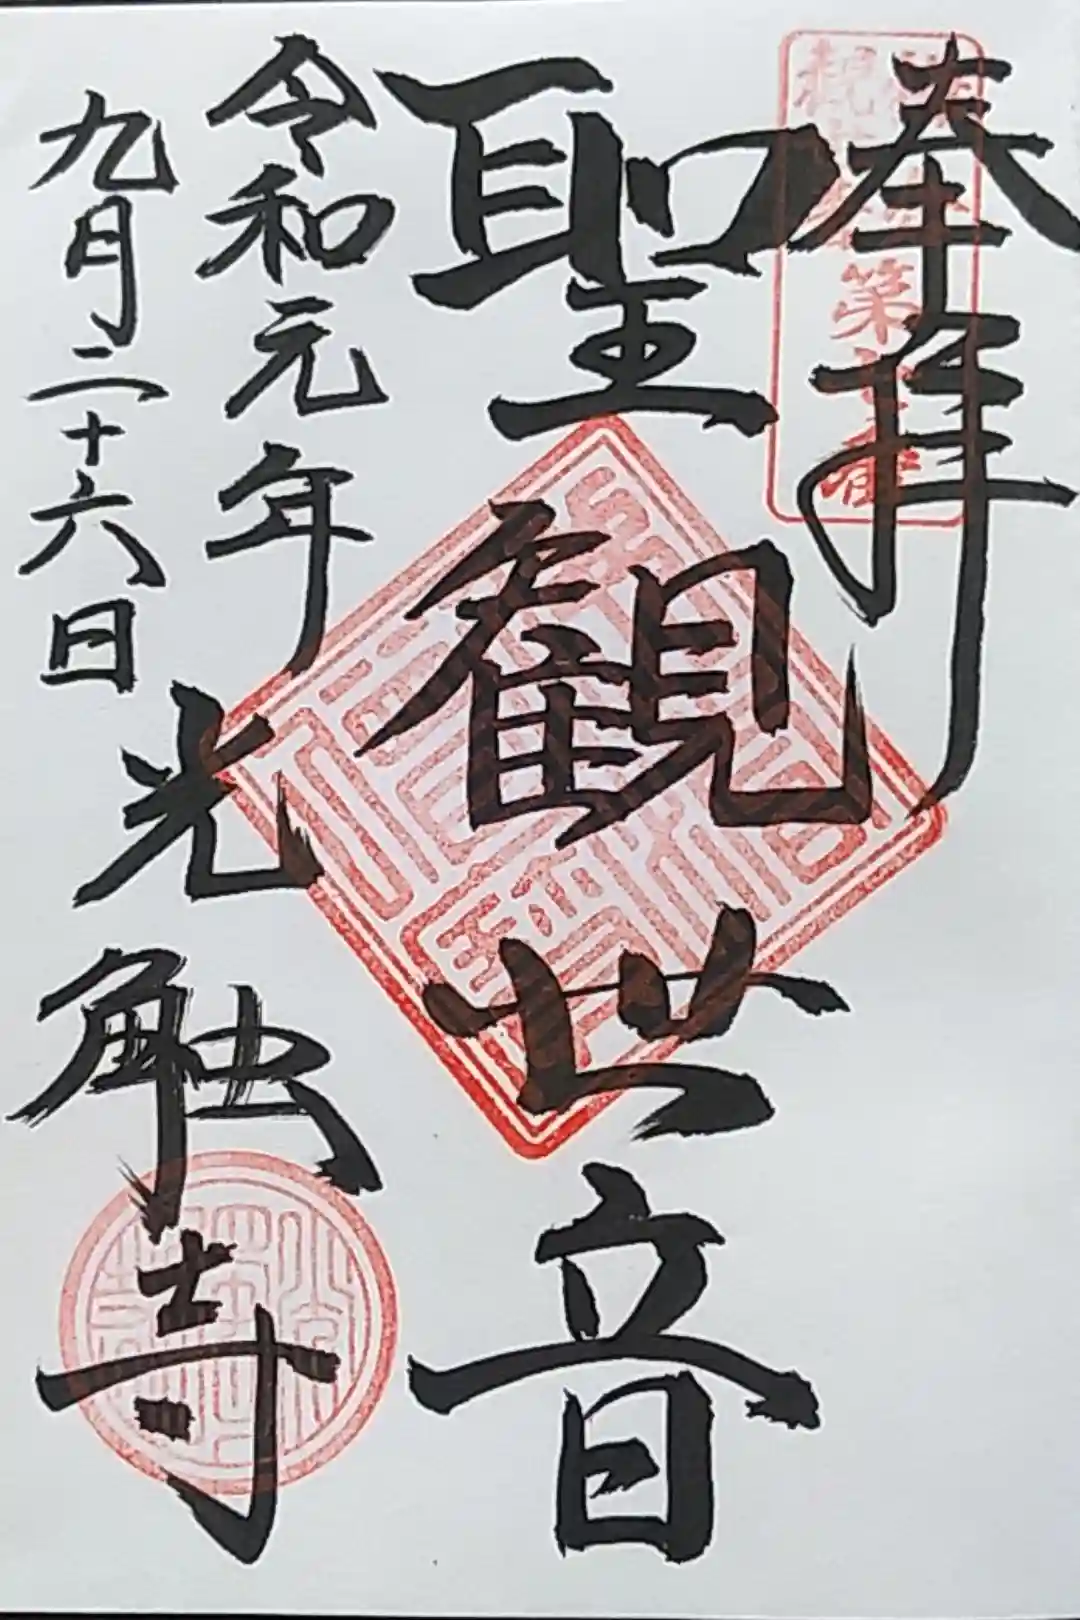 奉拝
聖観世音
令和元年
九月二十六日
光触寺